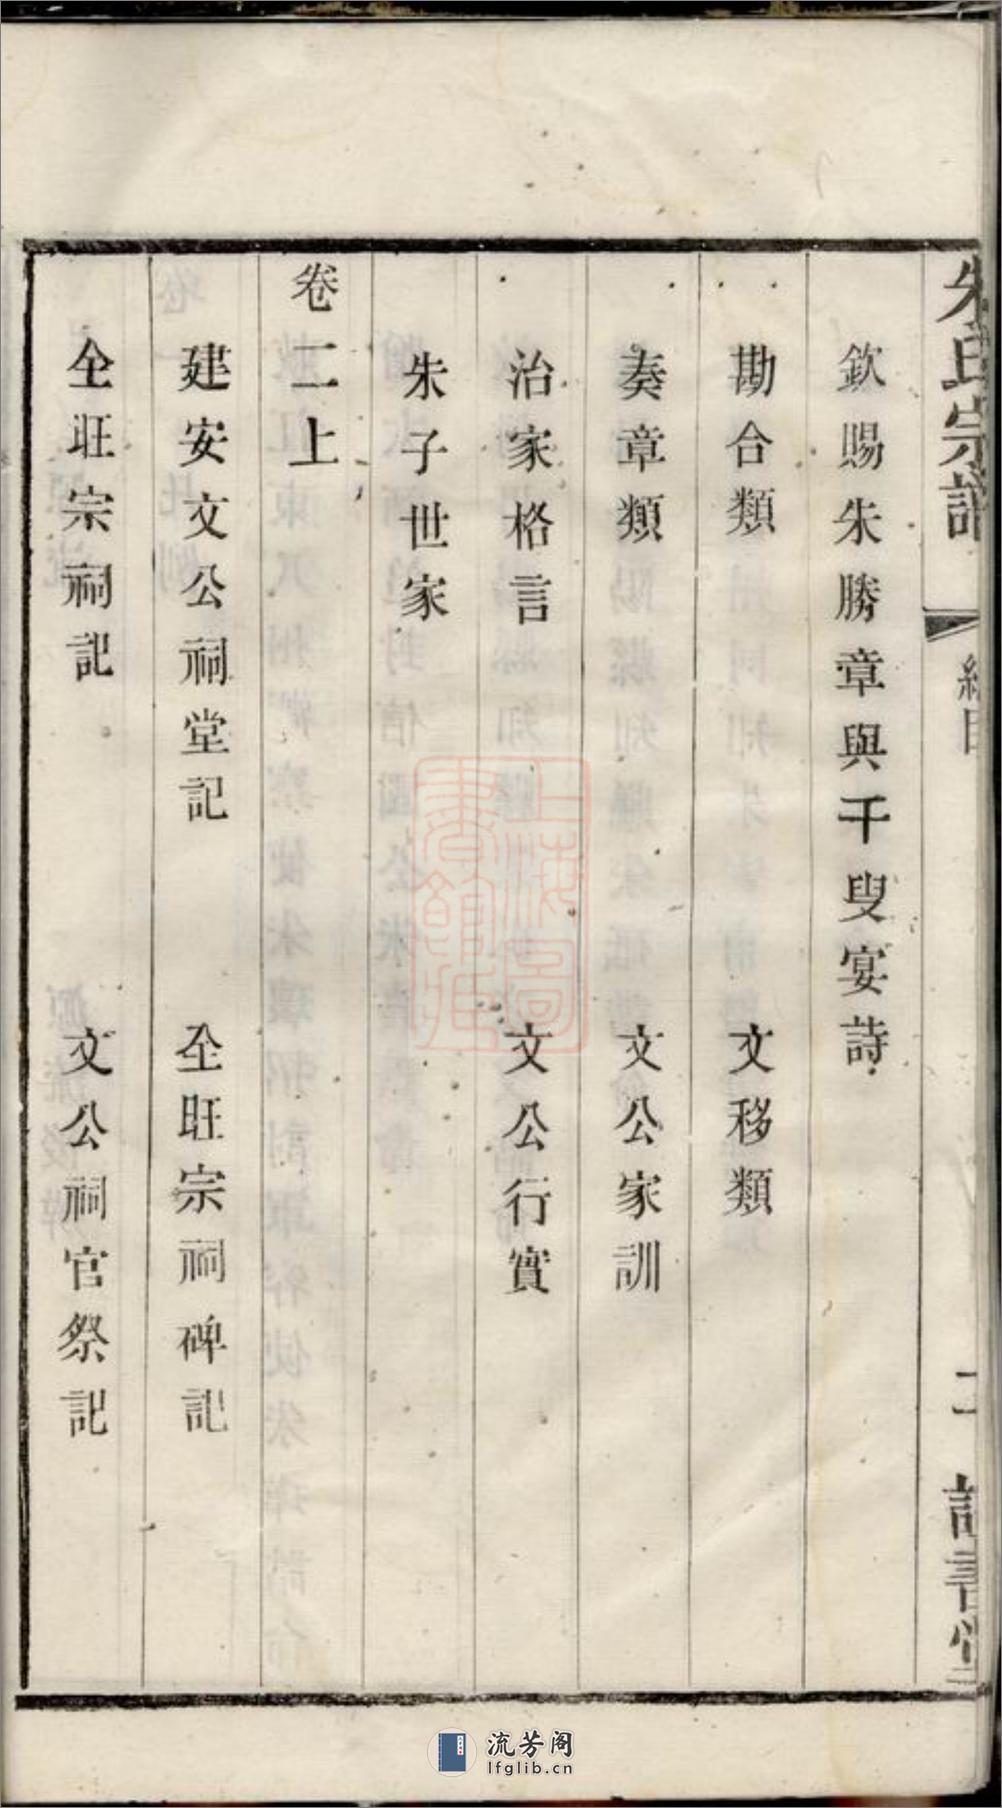 朱氏宗譜
總目
二
欽賜朱勝章與千叟宴詩
勘合類　文移類
奏章類　文公家訓
治家格言　文公行實
朱子世家
卷二上
建安文公祠堂記　仝旺宗祠碑記
仝旺宗祠記　文公祠官祭記
上海圖書館藏
流芳阁
lfglib.cn